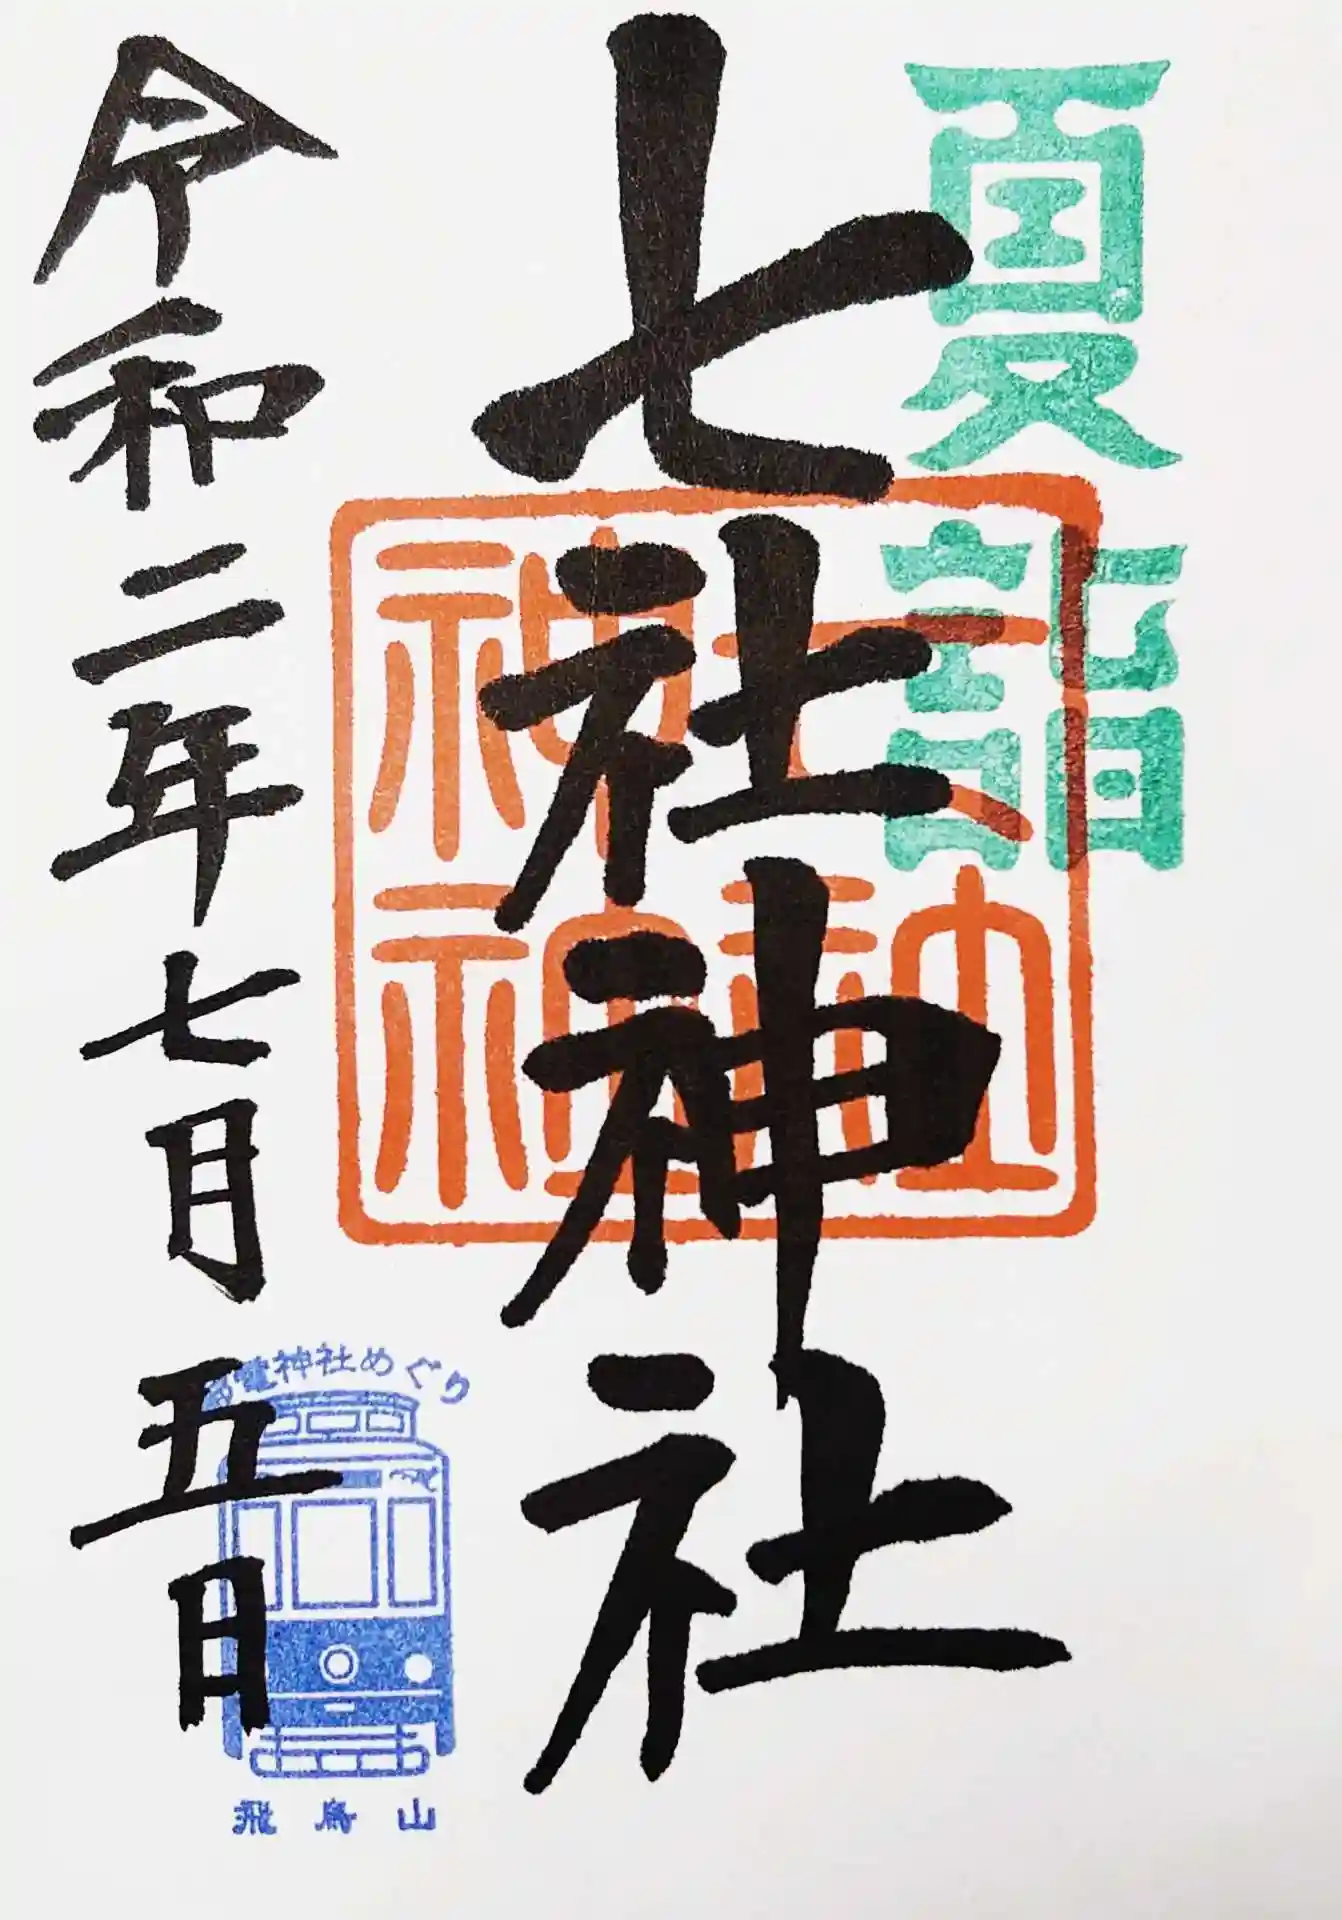 夏詣
七社神社
七社
神神
令和二年七月五日
都電神社めぐり
飛鳥山